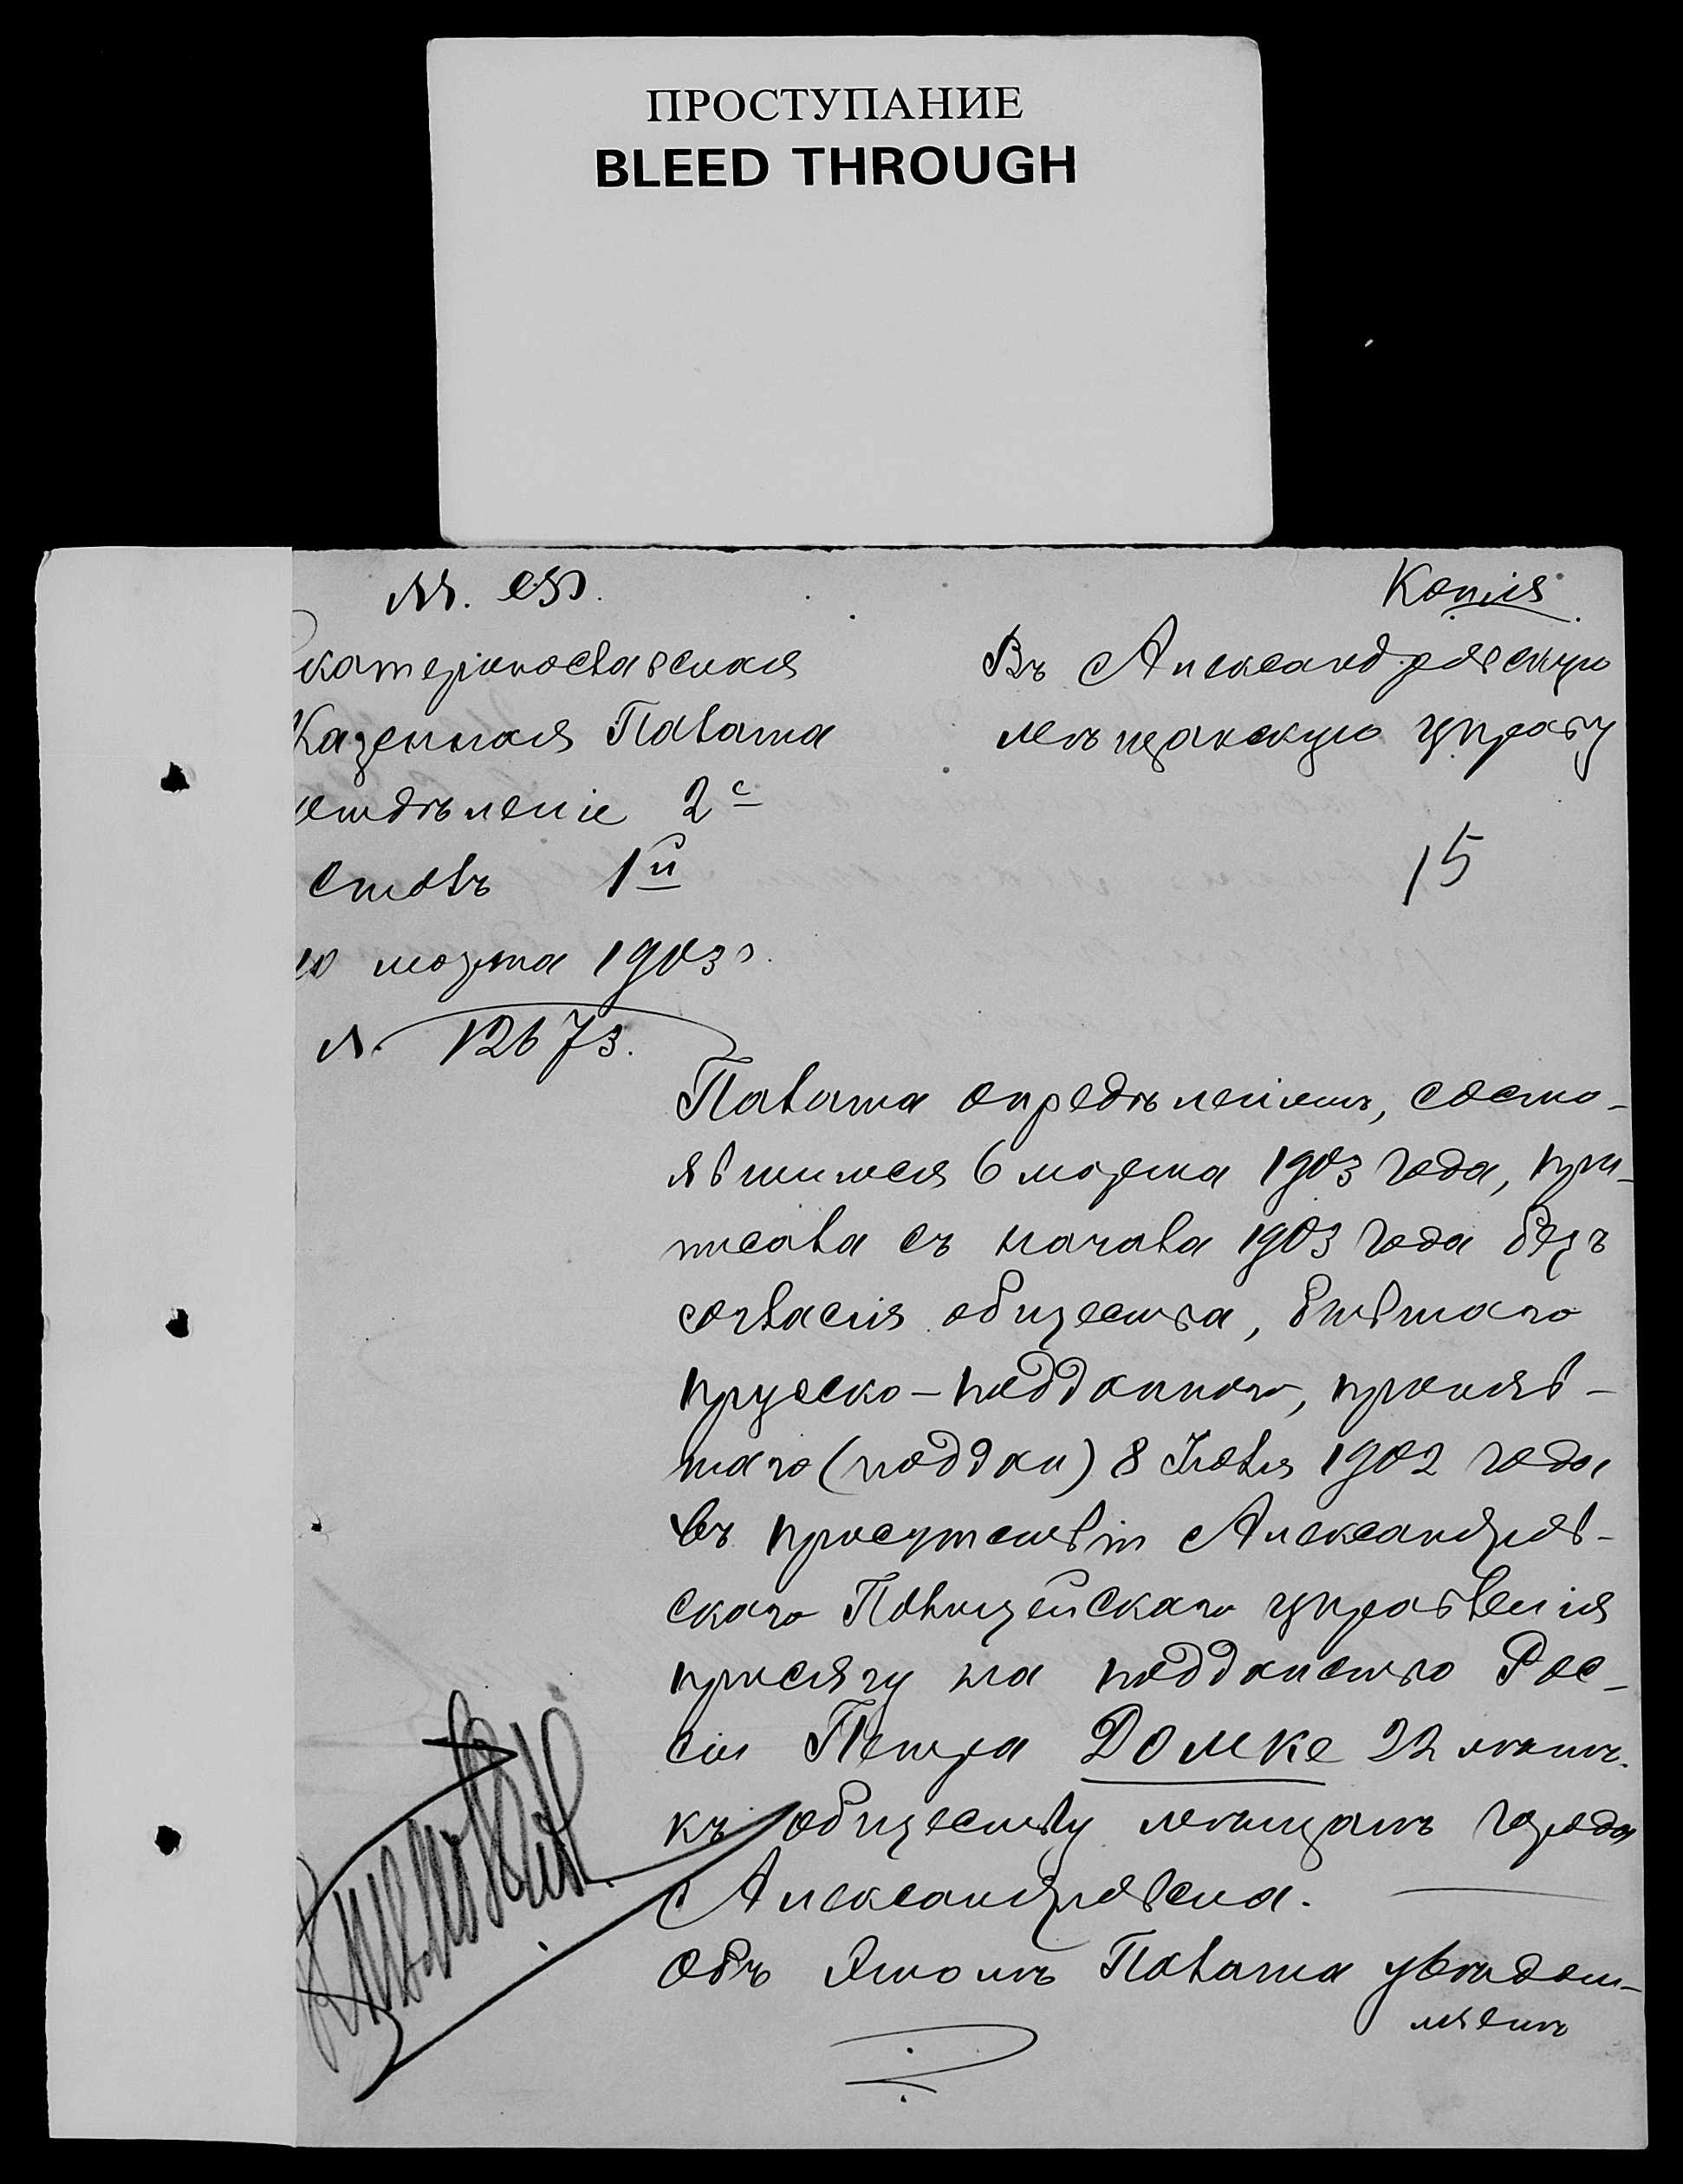 ПРОСТУПАНИЕ
BLEED THROUGH
М. Ф.
Копія.
катеринославская
Казенная Палата
отдѣленіе 2е
Столъ 1й
10 марта 1903 г.
№ 12673.
Въ Александровскую
мѣщанскую управу
15
Палата опредѣленіемъ, состо-
явшимся 6 марта 1903 года, при-
писала съ начала 1903 года безъ
согласія общества, бывшаго
прусско-подданнаго, приняв-
шаго (поддан) 8 Іюля 1902 года
въ присутствіи Александров-
скаго Полицейскаго управленія
присягу на подданство Рос-
сіи Петра Домке 22 лѣтъ.
къ обществу мѣщанъ города
Александровска.
Объ этомъ Палата увѣдом-
ляетъ